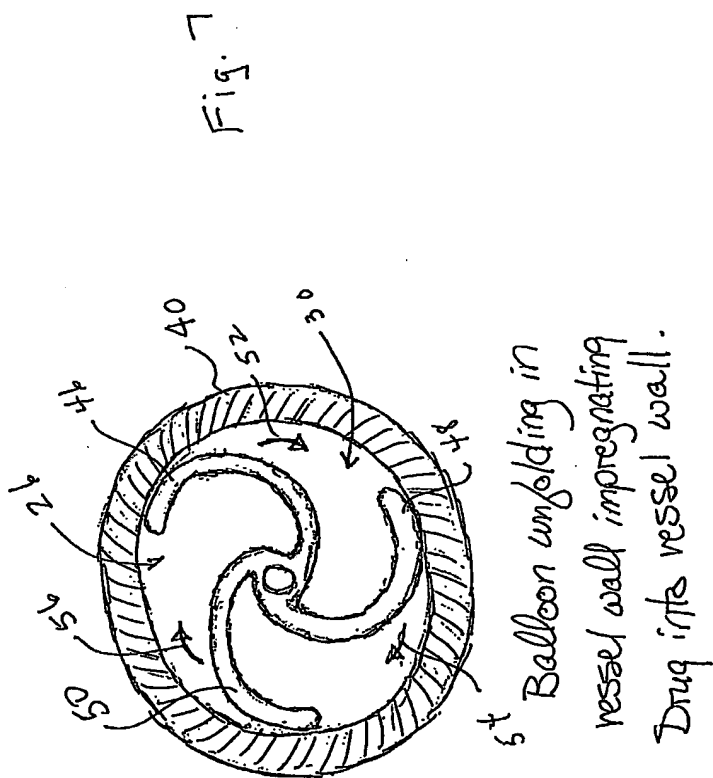 Fig. 7
26
46
40
52
30
48
54
50
56
Balloon unfolding in
vessel wall impregnating
Drug into vessel wall.